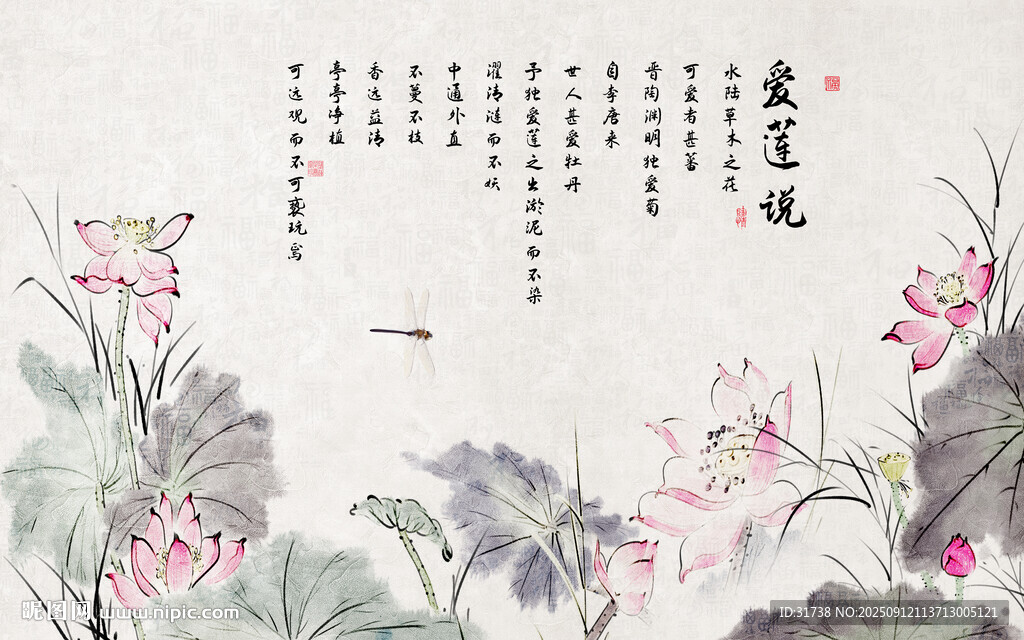 爱莲说
水陆草木之花
可爱者甚蕃
晋陶渊明独爱菊
自李唐来
世人甚爱牡丹
予独爱莲之出淤泥而不染
濯清涟而不妖
中通外直
不蔓不枝
香远益清
亭亭净植
可远观而不可亵玩焉
昵图网 www.nipic.com
ID:31738 NO:20250912113713005121